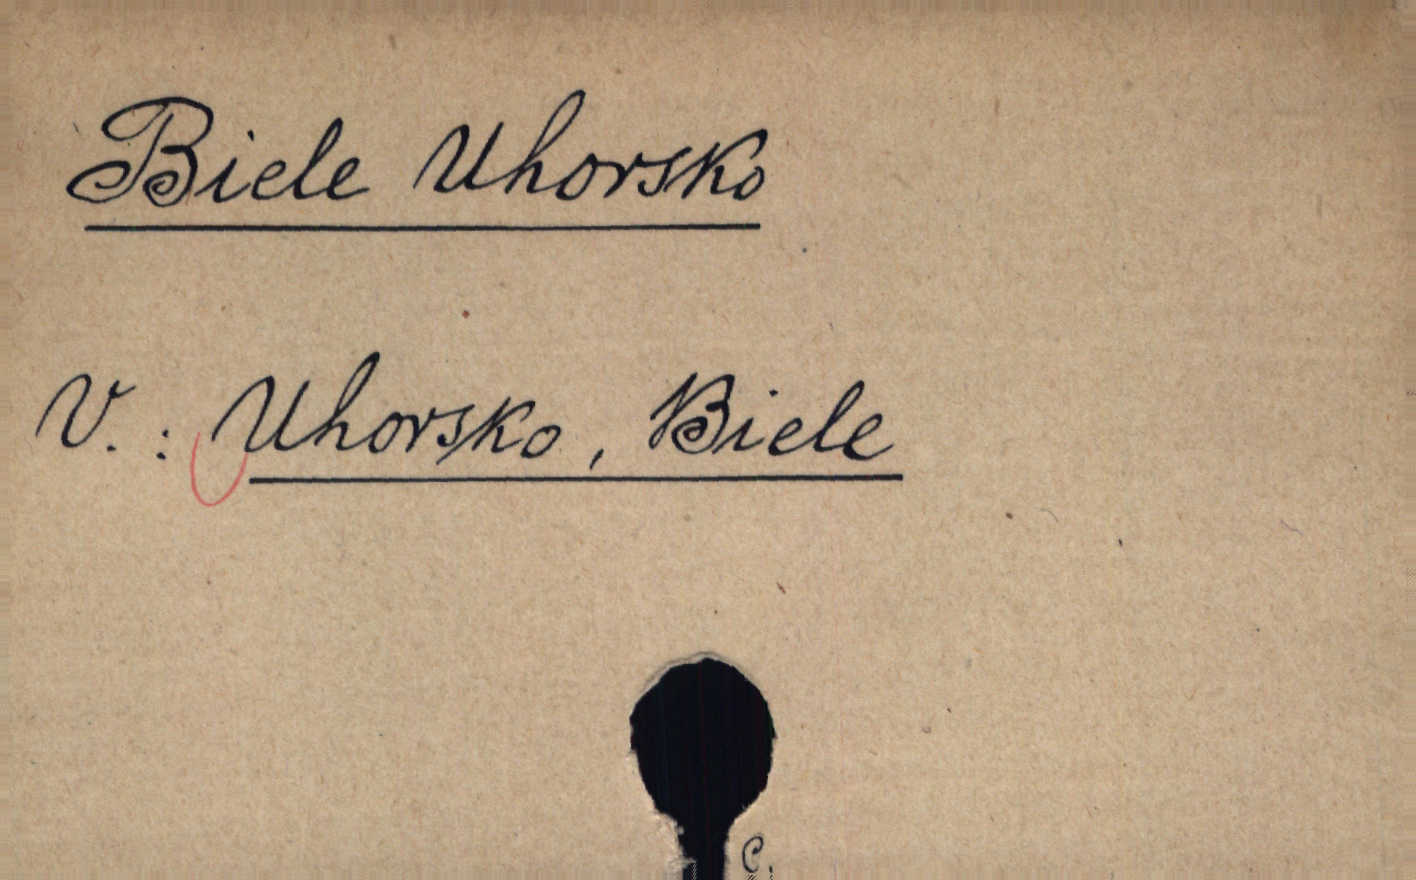 Biele Uhorsko
V. : Uhorsko, Biele
C.